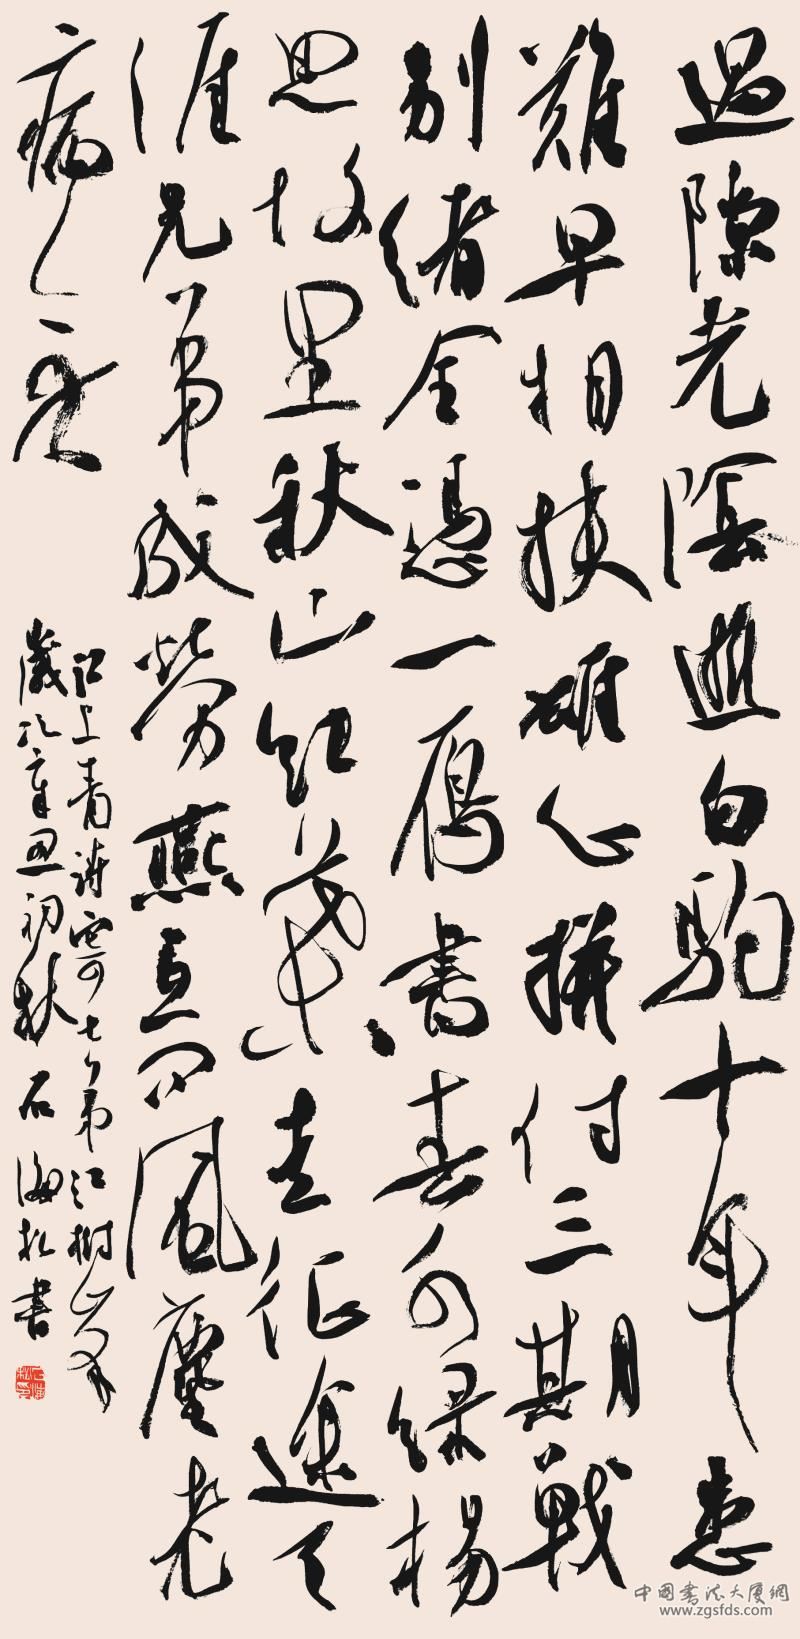 過隙光陰逝白駒十年患
難早相扶雄心拼付三期戰
別緒全憑一雁書春水綠楊
思故里秋山紅葉走征途天
涯兄弟成勞燕問風塵老
病無
江上青詩寄七弟江樹峯
歲次辛丑初秋石海松書
中國書法大廈網
www.zgsfds.com